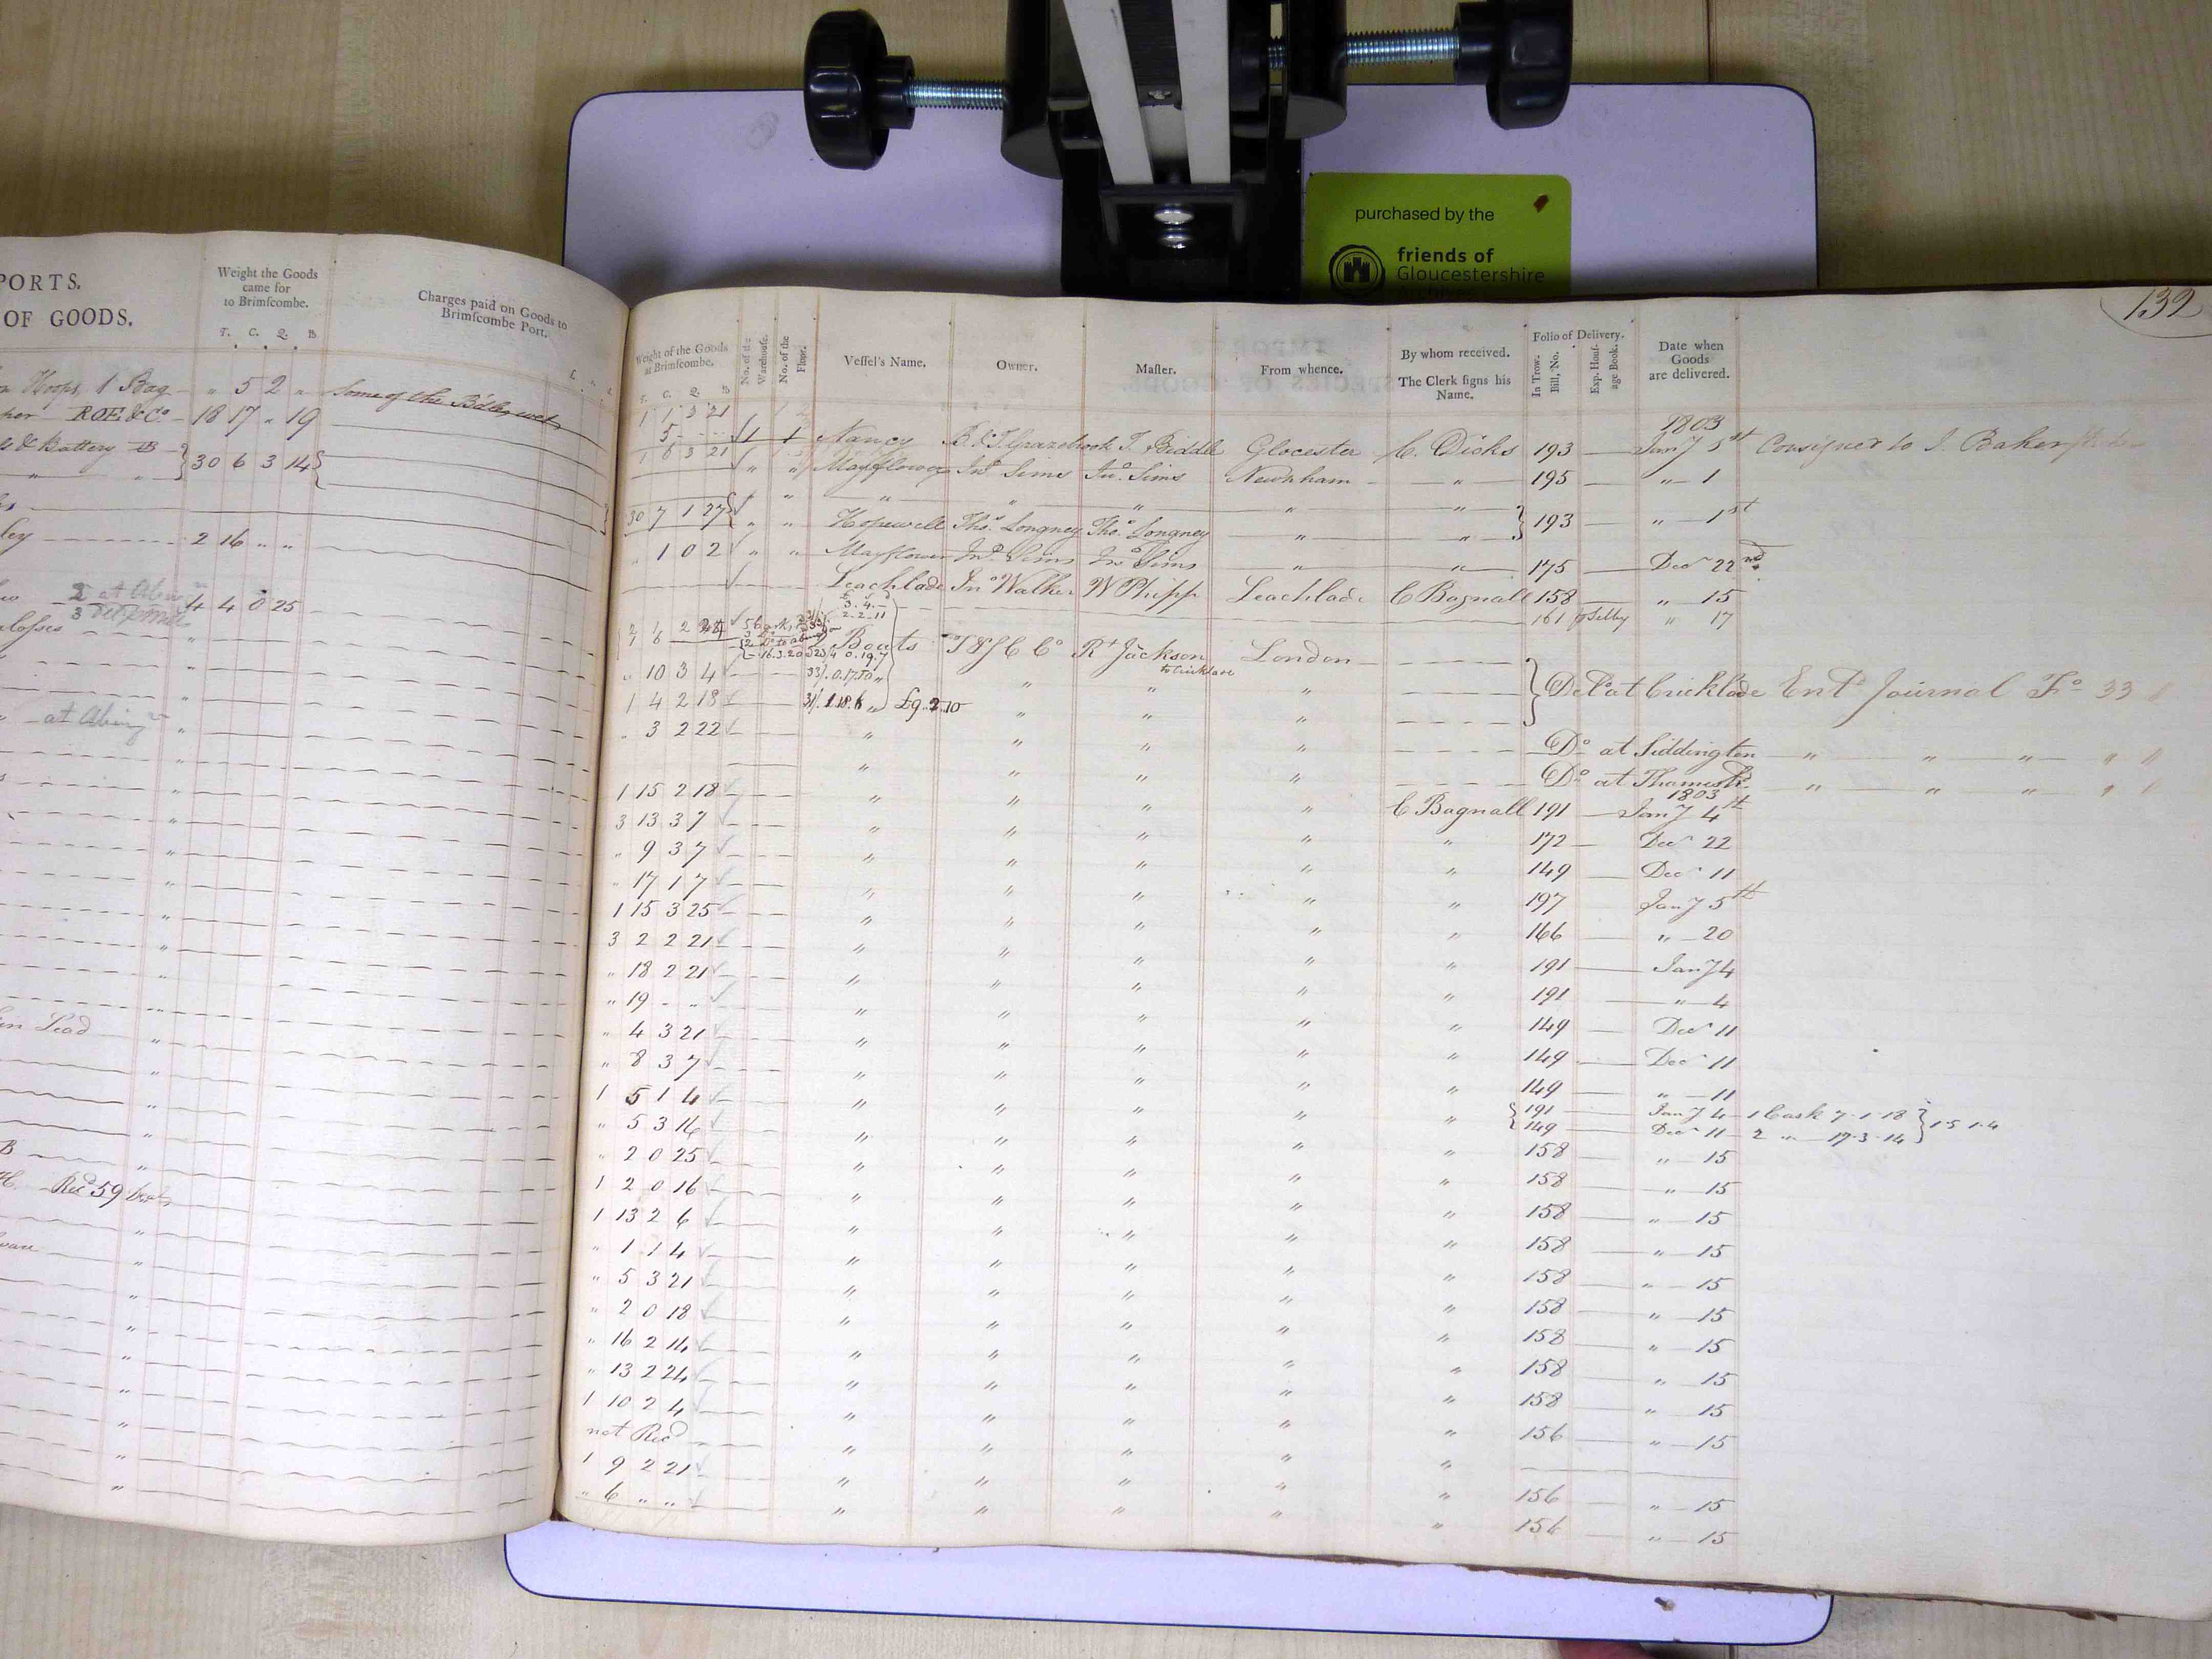 purchased by the
friends of
Gloucestershire
PORTS.
OF GOODS.
Weight the Goods
came for
to Brimscombe.
T. C. Q. lb
Charges paid on Goods to
Brimscombe Port.
Hoops, 1 Bag " 5 2 " Some of the wet
ROE & Co. 18 17 " 19
& Battery 30 6 3 14
ley 2 16 " "
2 at Abin
4 4 0 25
losses
at Abing
in Lead
B
Recd 59
132
Weight of the Goods
at Brimscombe.
T. C. Q. lb
No. of the Warehouse.
No. of the Floor.
Vessel's Name.
Owner.
Master.
From whence.
By whom received.
The Clerk signs his
Name.
Folio of Delivery.
In Trow. Bill, No.
Exp. Housage Book.
Date when
Goods
are delivered.
1 1 3 21
5 - - 1 1 Nancy B. & T. Grazebrook T. Biddle Glocester C. Dicks 193 1803 Jany 5st Consigned to J. Baker
1 6 3 21 " " Mayflower Jno. Sims Jno. Sims Newnham " 195 " 1
" " " " " " "
30 7 1 27 " " Hopewell Thos. Longney Thos. Longney " " 193 " 1st
" 1 0 2 " " Mayflower Jno. Sims Jno. Sims " " 175 Decr 22nd
Leachlade Jno Walker W Phipp Leachlade C Bagnall 158 " 15
161 pSelby " 17
Boats T & S C Co Rt Jackson London
to Cricklade
" 10 3 4 33/. 0.17.10 " " " "
Deld at Cricklade Entd Journal Fo 33
1 4 2 18 31/. 1.18.6 " £9..2.10 " " "
" 3 2 22 " " " " Do at Siddington " " " " "
" " " " Do at Thames Hd " " " " "
1 15 2 18 " " " " C Bagnall 191 1803 Jany 4th
3 13 3 7 " " " " " 172 Decr 22
" 9 3 7 " " " " " 149 Decr 11
" 17 1 7 " " " " " 197 Jany 5th
1 15 3 25 " " " " " 166 " 20
3 2 2 21 " " " " " 191 Jany 4
" 18 2 21 " " " " " 191 " 4
" 19 - " " " " " " 149 Decr 11
" 4 3 21 " " " " " 149 Decr 11
" 8 3 7 " " " " " 149 " 11
1 5 1 4 " " " " " 191 Jany 4 1 Cask 7.1.18
149 Decr 11 2 " 17.3.14 1.5.1.4
" 5 3 14 " " " " " 158 " 15
" 2 0 25 " " " " " 158 " 15
1 2 0 16 " " " " " 158 " 15
1 13 2 6 " " " " " 158 " 15
" 1 1 4 " " " " " 158 " 15
" 5 3 21 " " " " " 158 " 15
" 2 0 18 " " " " " 158 " 15
" 16 2 14 " " " " " 158 " 15
" 13 2 24 " " " " " 158 " 15
1 10 2 4 " " " " " 156 " 15
not Recd " " " " "
1 9 2 21 " " " " " 156 " 15
" 6 " " " " " " " 156 " 15